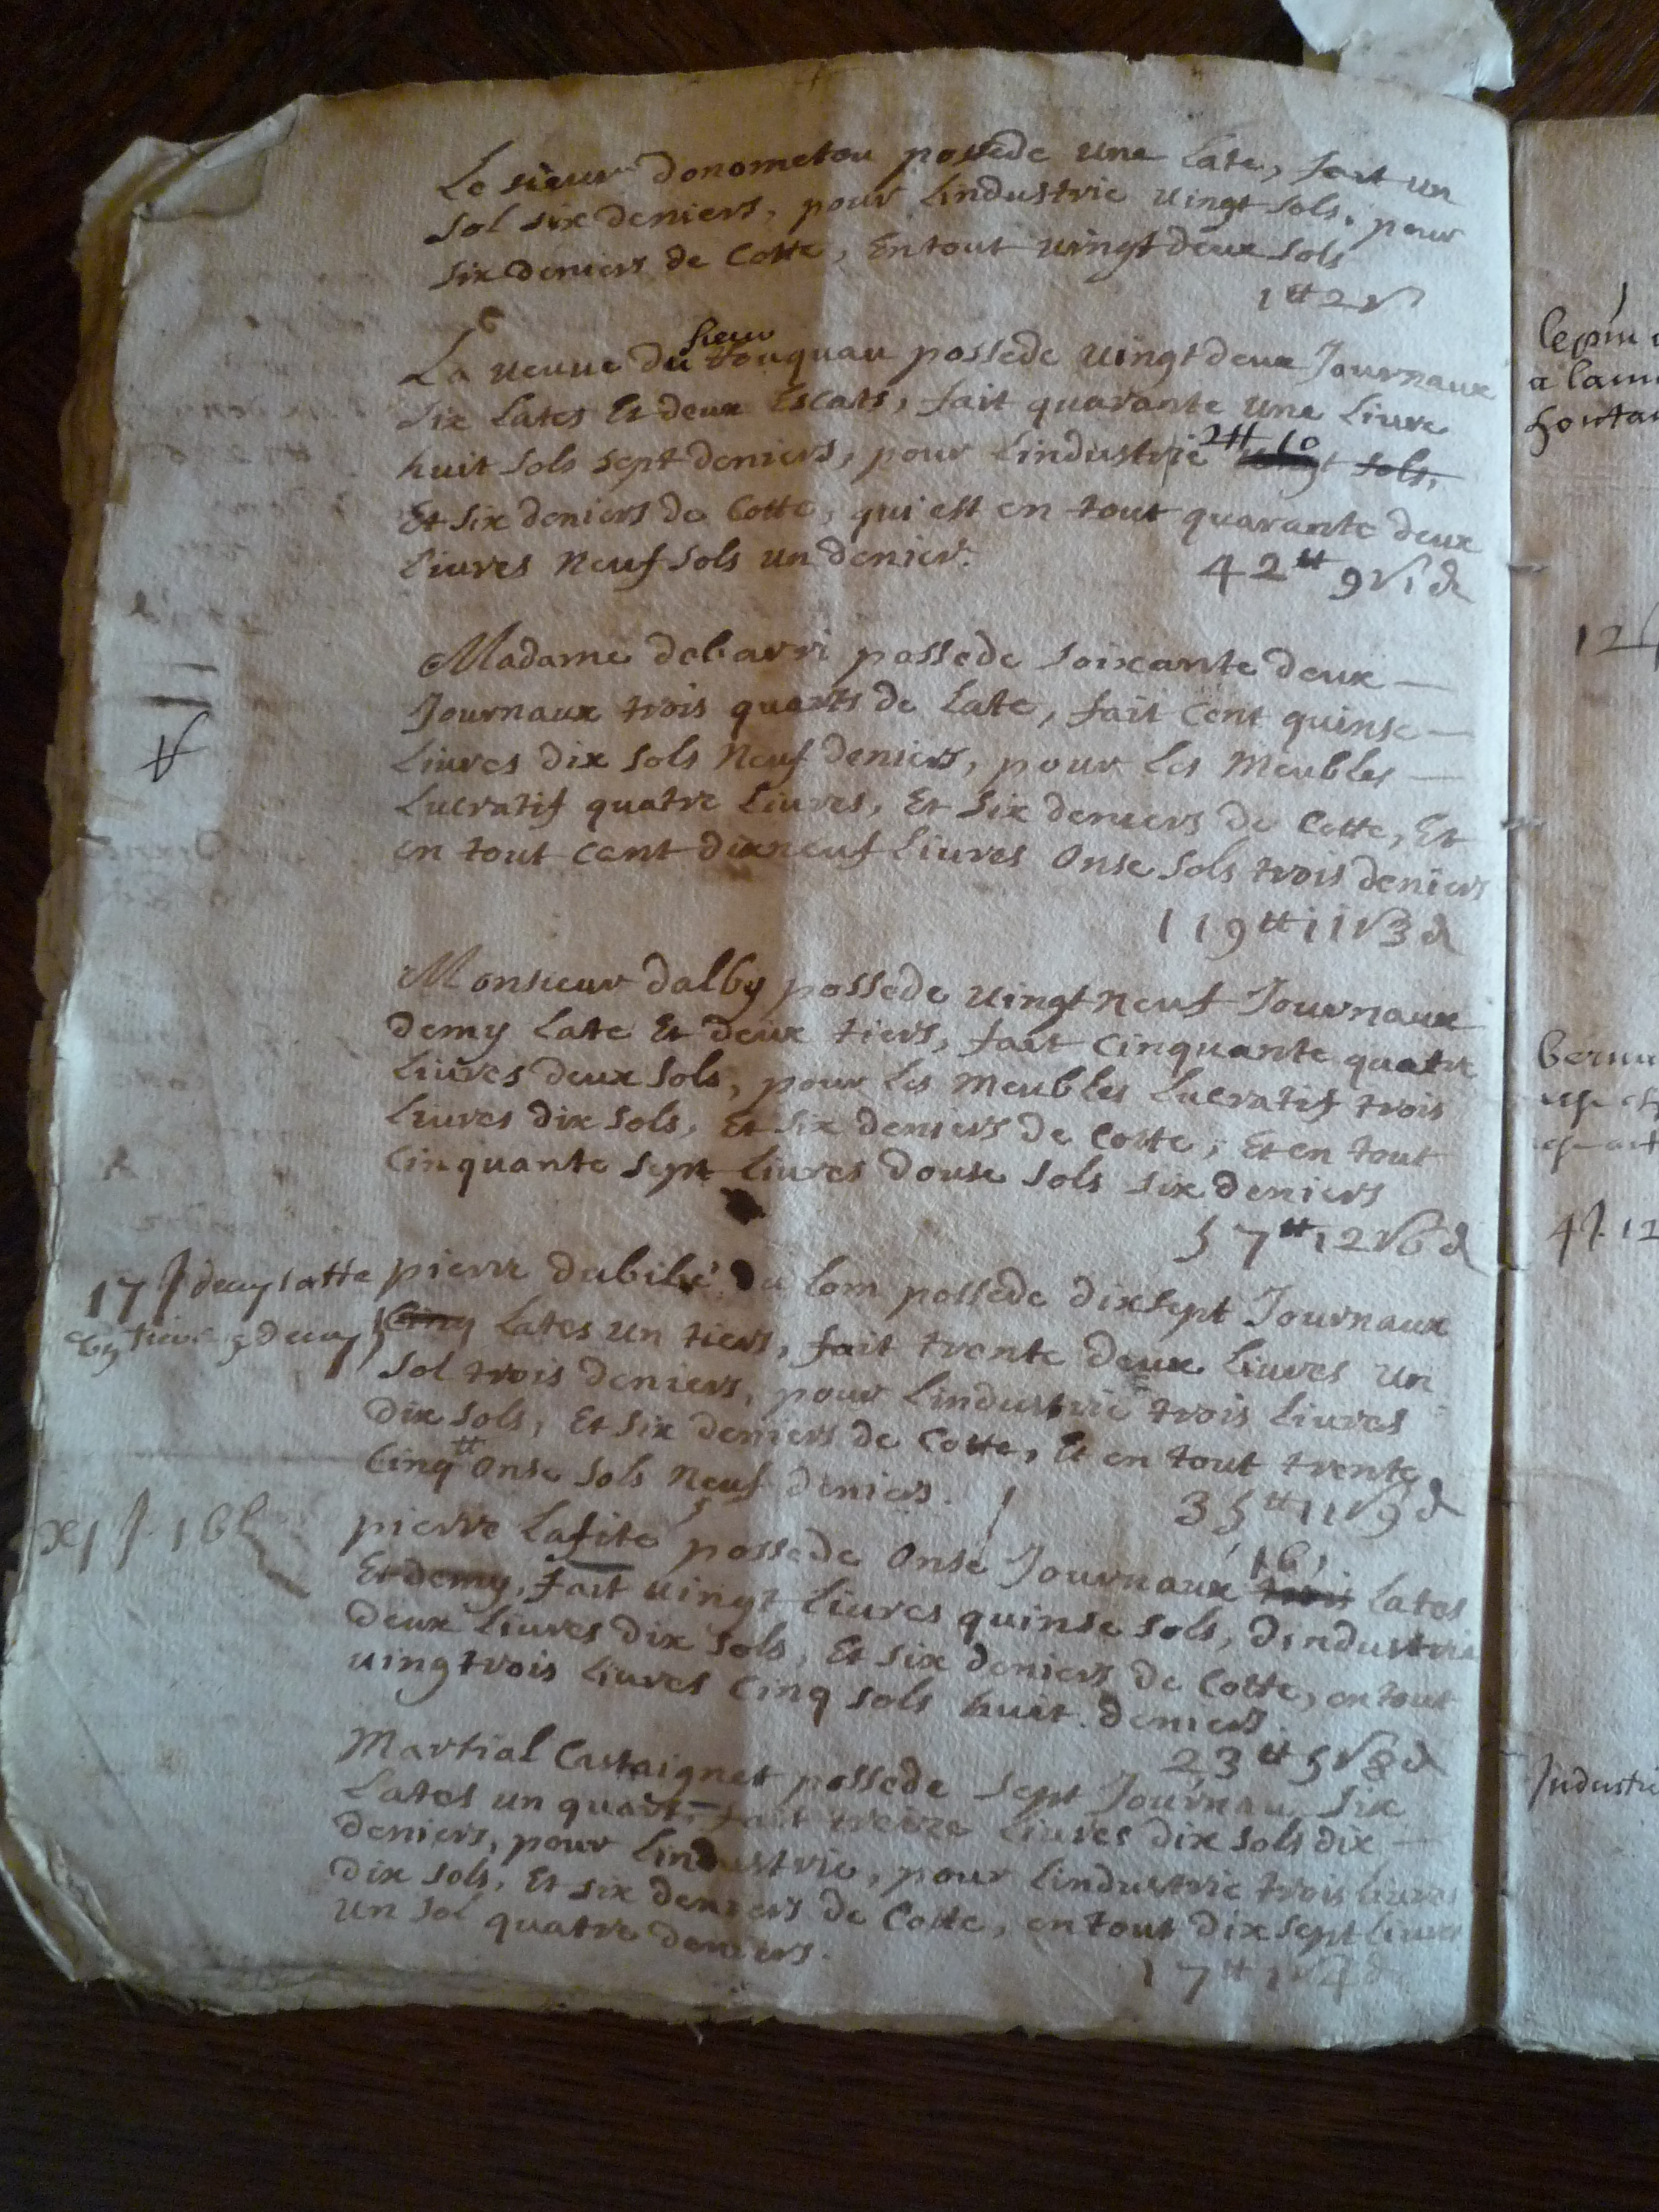 Le sieur donometou possede une Late, fait un
sol six deniers, pour Lindustrie uingt sols, pour
six deniers de Cotte, En tout uingt deux sols
1 tt 2 s
sieur
La ueuue du touquau possede uingt deux Journaux
six Lates Et deux Escats, fait quarante une Liure
2 tt 10
huit sols sept deniers, pour Lindustrie uingt sols,
Et six deniers de Cotte, qui est en tout quarante deux
Liures Neuf sols un denier.
42 tt 9 s 1 d
Madame debarri possede soixante deux
Journaux trois quarts de Late, fait Cent quinse
Liures dix sols Neuf deniers, pour Les Meubles
Lucratif quatre Liures, Et six deniers de Cotte, Et
en tout Cent dixneuf Liures Onse sols trois deniers
119 tt 11 s 3 d
Monsieur dalby possede uingt neuf Journaux
demy Late Et deux tiers, fait Cinquante quatre
Liures deux sols, pour Les Meubles Lucratif trois
Liures dix sols, Et six deniers de Cotte, Et en tout
Cinquante sept Liures douse sols six deniers
57 tt 12 s 6 d
17 J demy latte
pierre dubile du lom possede dixsept Journaux
Cinq Lates un tiers, fait trente deux Liures un
sol trois deniers, pour Lindustrie trois Liures
dix sols, Et six deniers de Cotte, Et en tout trente
Cinq tt Onse sols Neuf deniers.
35 tt 11 s 9 d
xj J. 16 l
pierre Lafite possede Onse Journaux trois Lates
16
Et demy, fait uingt Liures quinse sols, dindustrie
deux Liures dix sols, Et six deniers de Cotte, en tout
uingtrois Liures Cinq sols huit deniers.
23 tt 5 s 8 d
Martial Castaignet possede sept Journau six
Lates un quart, fait treize Liures dix sols dix
deniers, pour Lindustrie, pour Lindustrie trois Liures
dix sols, Et six deniers de Cotte, en tout dix sept Liures
un sol quatre deniers.
17 tt 1 s 4 d